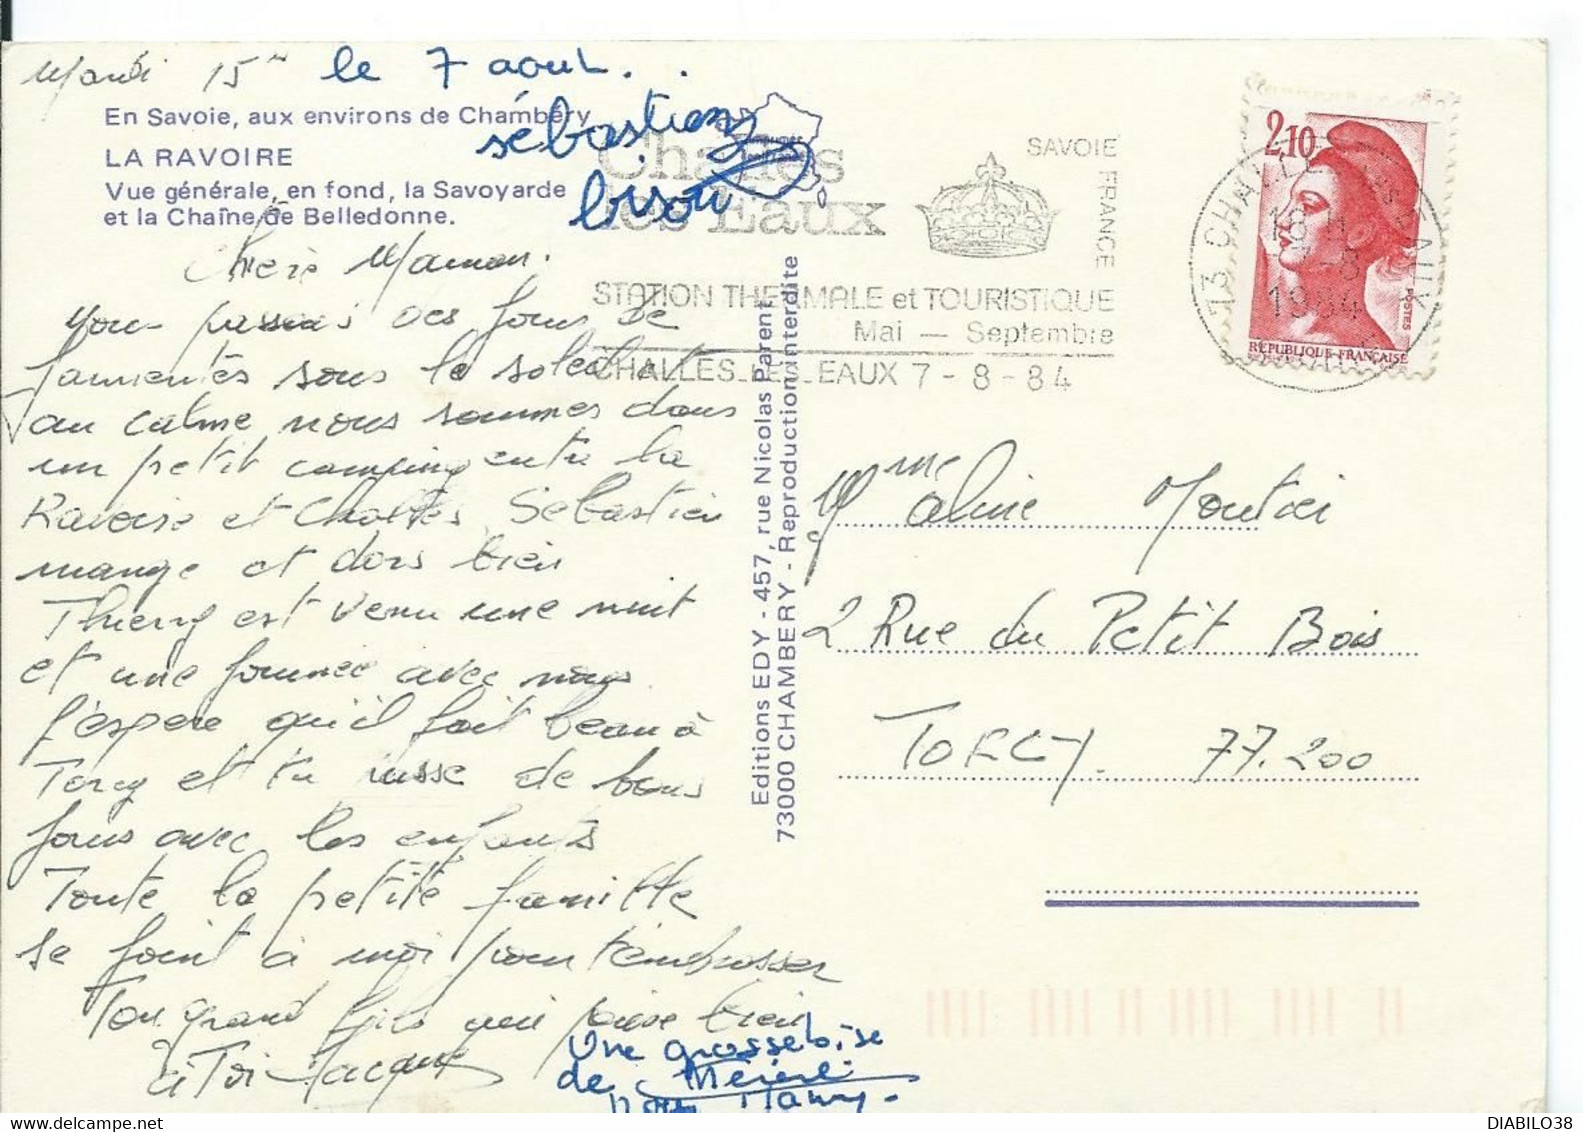 Mardi 15 le 7 aout..
En Savoie, aux environs de Chambéry
LA RAVOIRE
Vue générale, en fond, la Savoyarde
et la Chaîne de Belledonne.
sébastien
bisou
Chère Maman.
Nous passons des jours de
farnientes sous le soleil et
au calme nous sommes dans
un petit camping entre la
Ravoire et Challes, Sébastien
mange et dors bien
Thierry est venu une nuit
et une journée avec nous
J'espere qu'il fait beau à
Torcy et tu passe de bons
jours avec les enfants
Toute la petite famille
se joint à moi pour t'embrasser
Ton grand fils qui pense bien
à Toi Jacques
Une grosse bise
de
Challes
les Eaux
SAVOIE
FRANCE
STATION THERMALE et TOURISTIQUE
Mai — Septembre
CHALLES-LES-EAUX 7 - 8 - 84
2,10
POSTES
REPUBLIQUE FRANÇAISE
73 CHALLES LES EAUX
18 H
7-8
1984
Editions EDY - 457, rue Nicolas Parent
73000 CHAMBERY - Reproduction interdite
Mme Aline
2 Rue du Petit Bois
TORCY. 77.200
DIABILO38